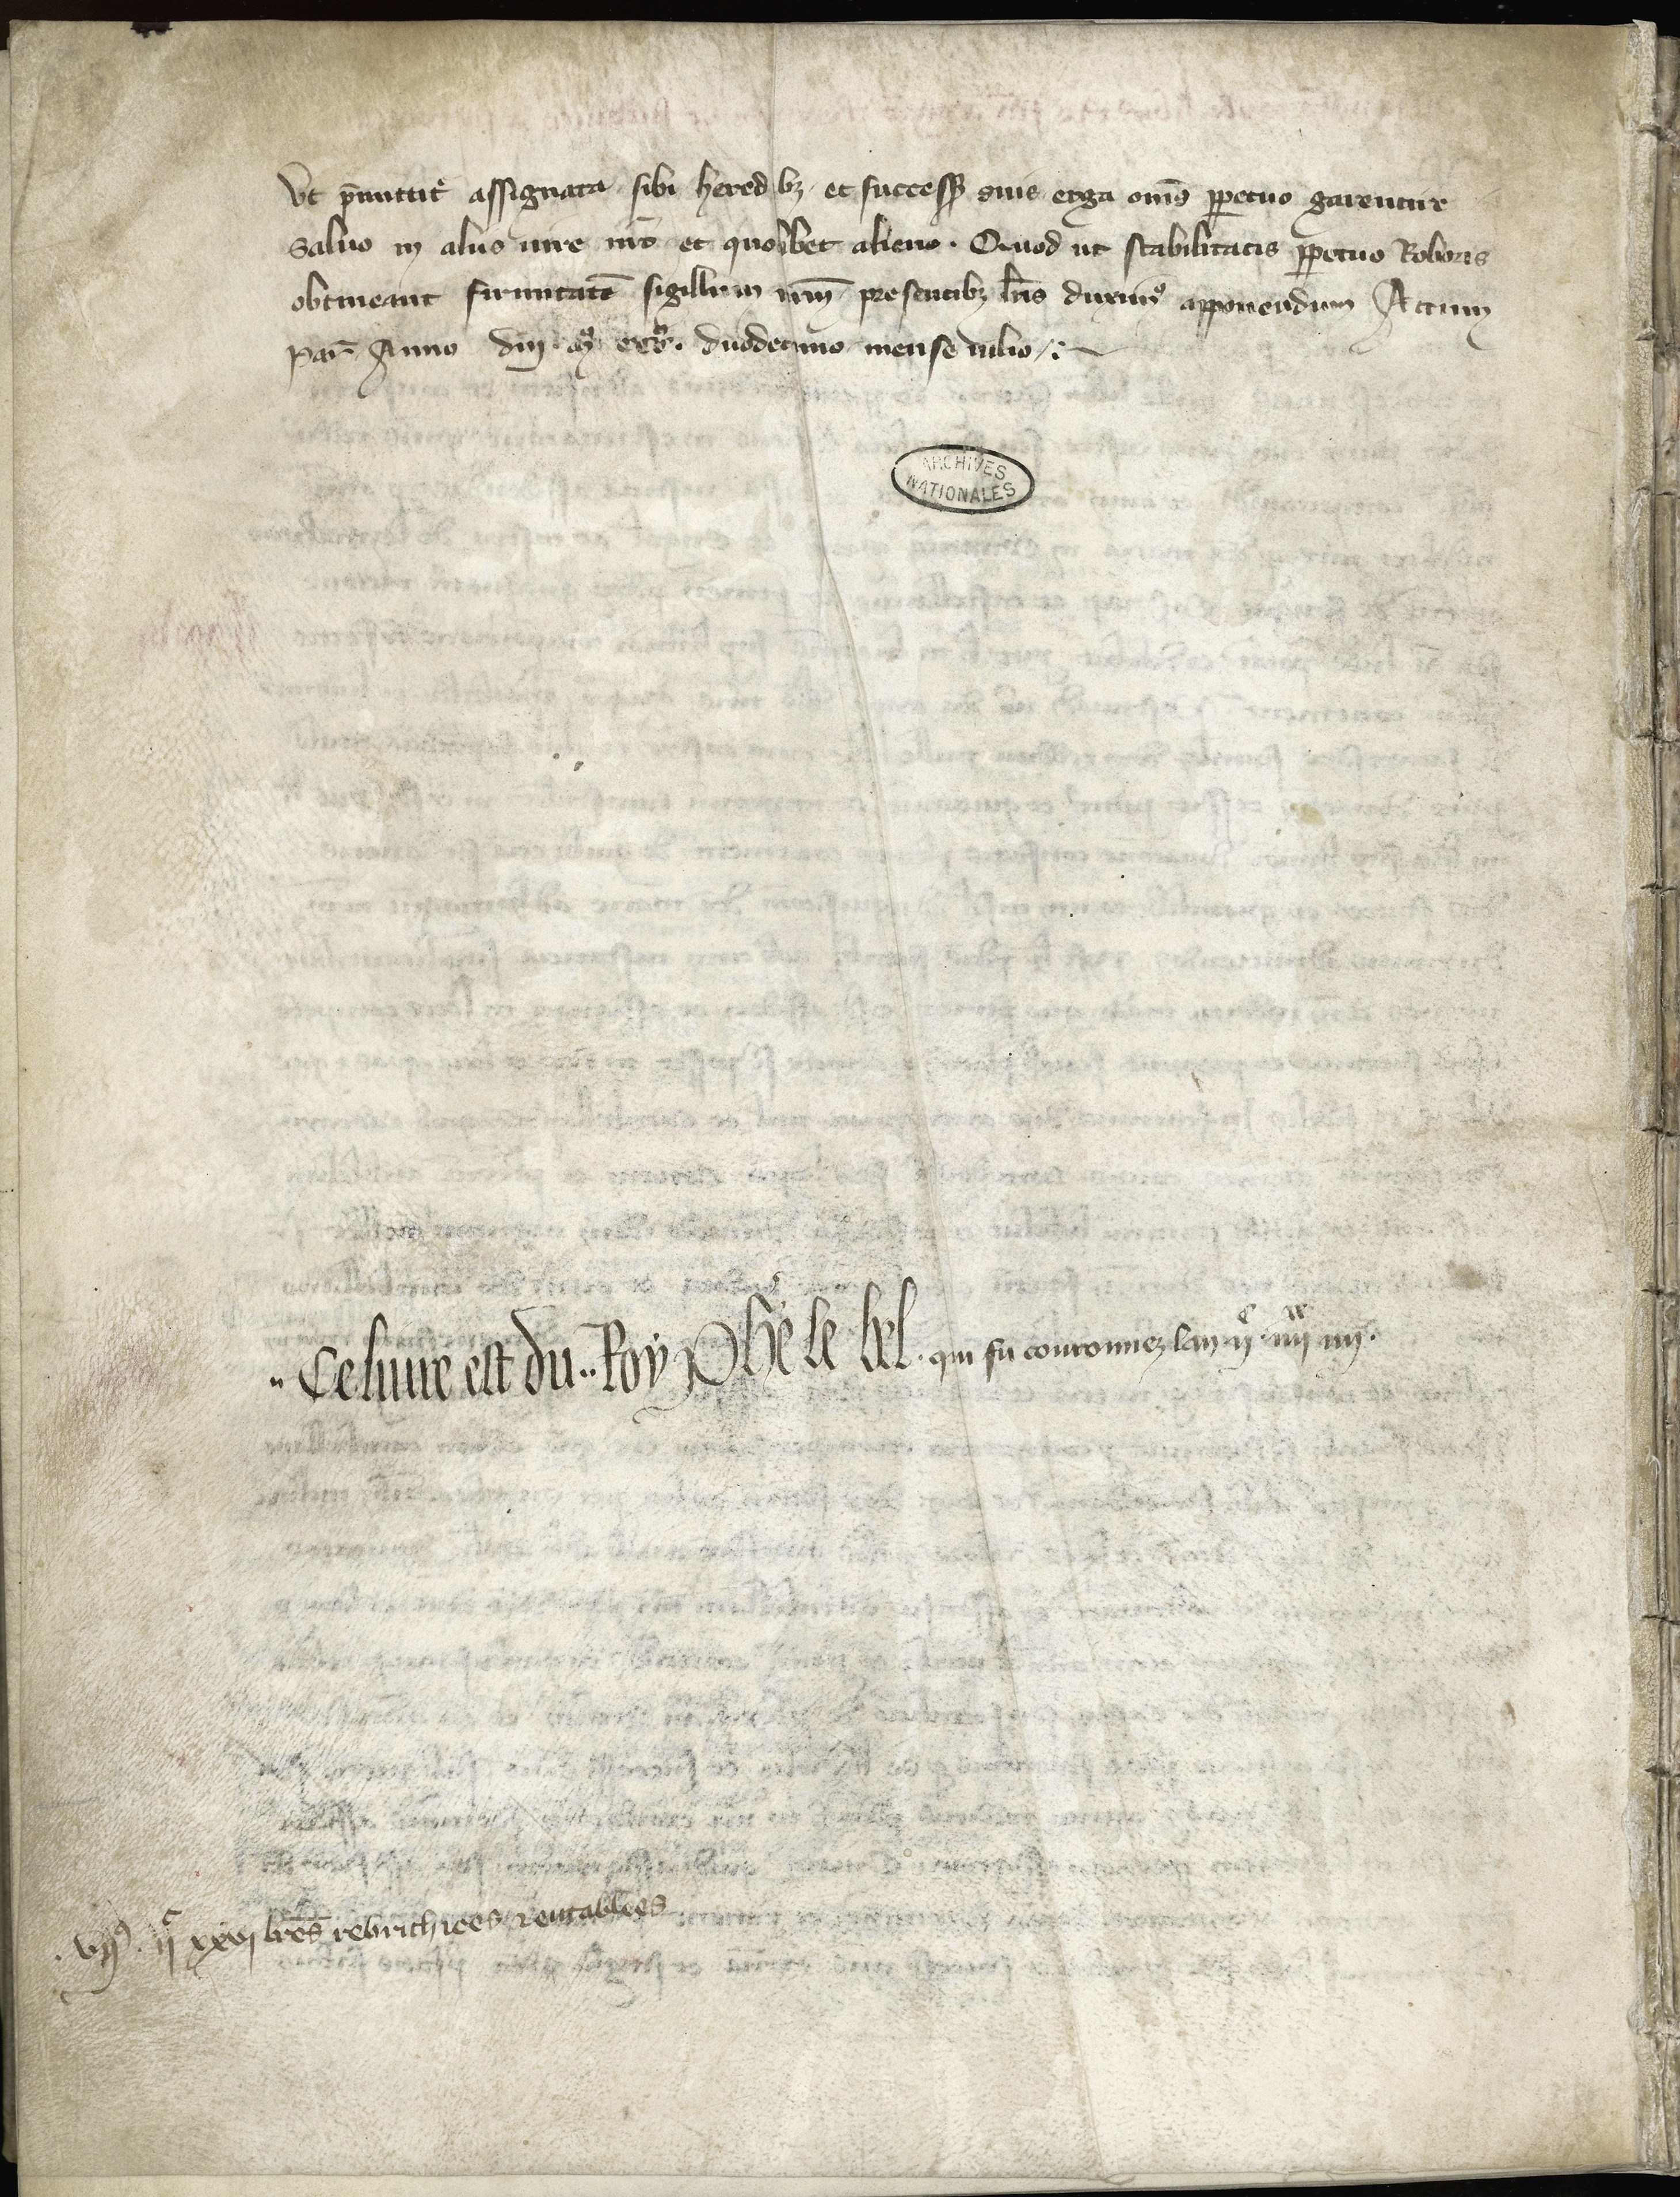 Ut p̄mittit᷑ assignata sibi heredibȝ et success suis erga om̄s ꝑpetuo garentire
Saluo in aliis iure nr̄o et quolibet alieno. Quod ut stabilitatis ꝑpetuo Roboris
obtineant firmitatē sigillum nr̄m presentibȝ lr̄is duximꝰ apponendum Actum
Par̄ Anno dn̄i mͦ cccͦ. duodecimo mense iulio
ARCHIVES
NATIONALES
Ce liure est du Roy Phē le bel. qui fu couronnez lan ijᶜ. iiijˣˣ iiij.
ijᶜ xxvj lr̄es rebrichiees rentablees